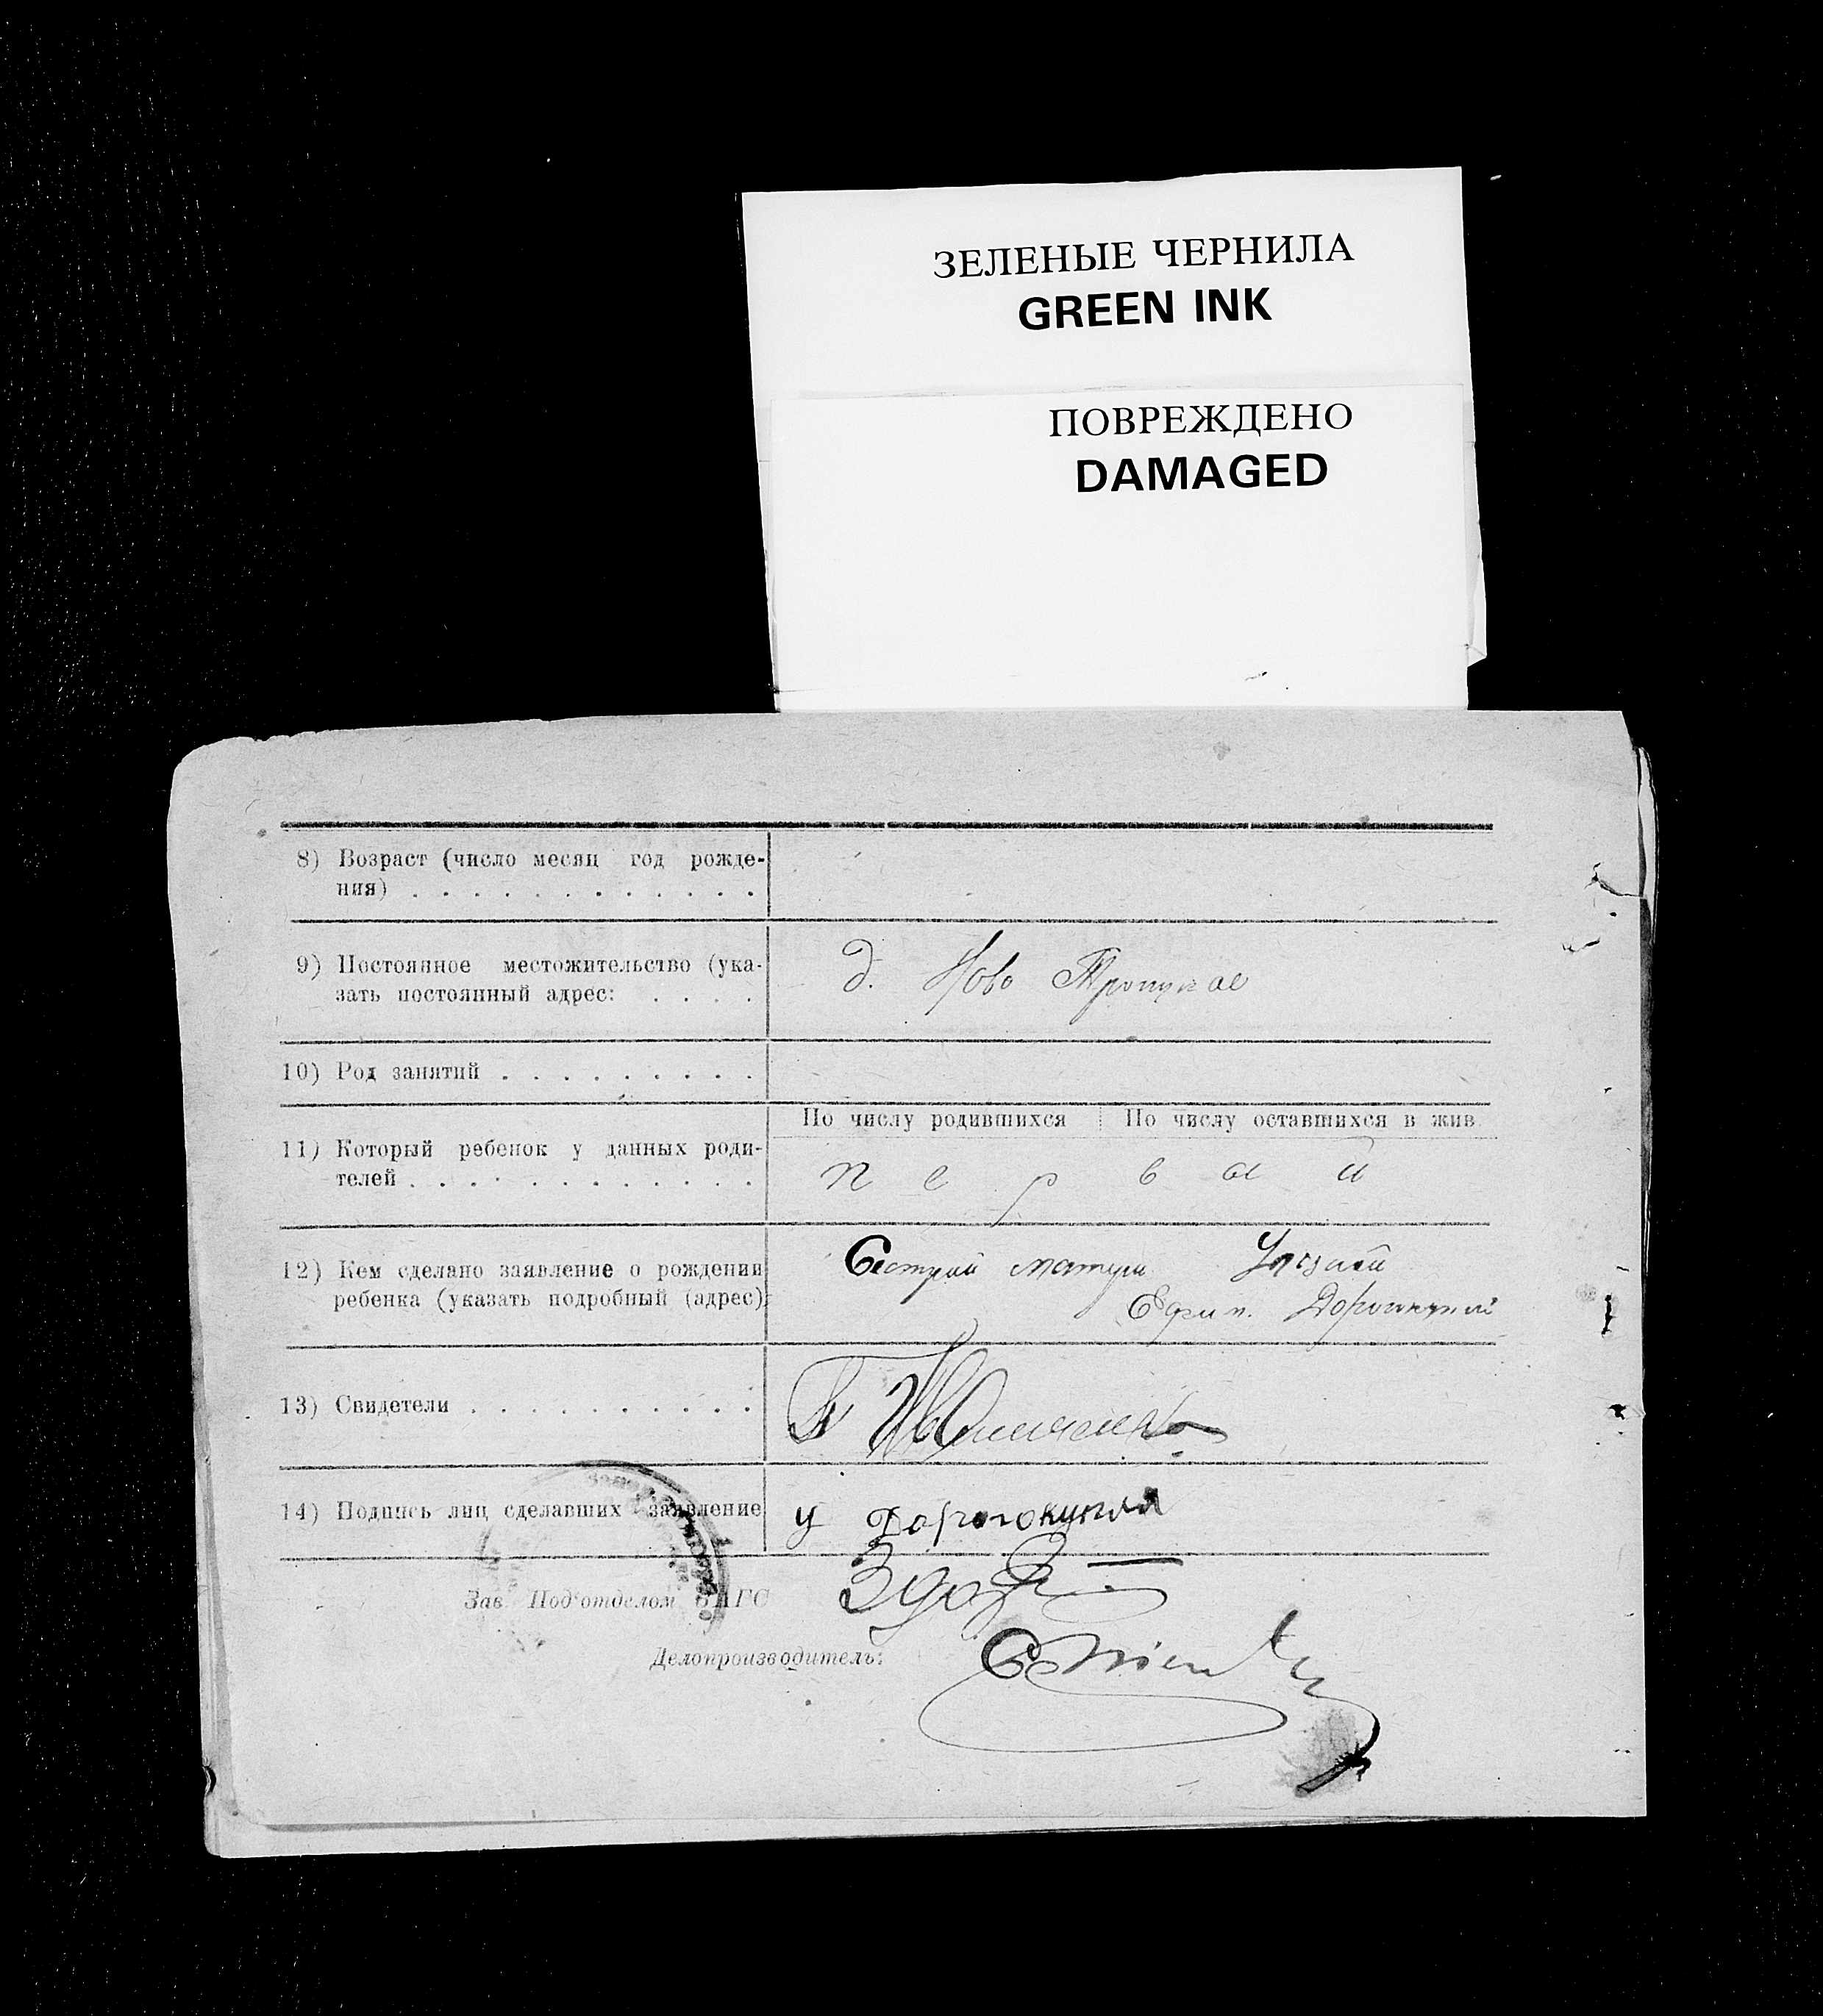 ЗЕЛЕНЫЕ ЧЕРНИЛА
GREEN INK
ПОВРЕЖДЕНО
DAMAGED
8) Возраст (число месяц год рожде-
ния) . . . . . . . . . . . .
9) Постоянное местожительство (ука-
зать постоянный адрес: . . . .
д. Ново
10) Род занятий . . . . . . . . .
11) Который ребенок у данных роди-
телей . . . . . . . . . . . .
По числу родившихся
По числу оставшихся в жив
п е р в ы й
12) Кем сделано заявление о рождении
ребенка (указать подробный (адрес)
Сестрой матери
13) Свидетели . . . . . . . . . .
14) Подпись лиц сделавших заявление
У Дорогокупля
Зав Под'отделом ЗАГС
Делопроизводитель: